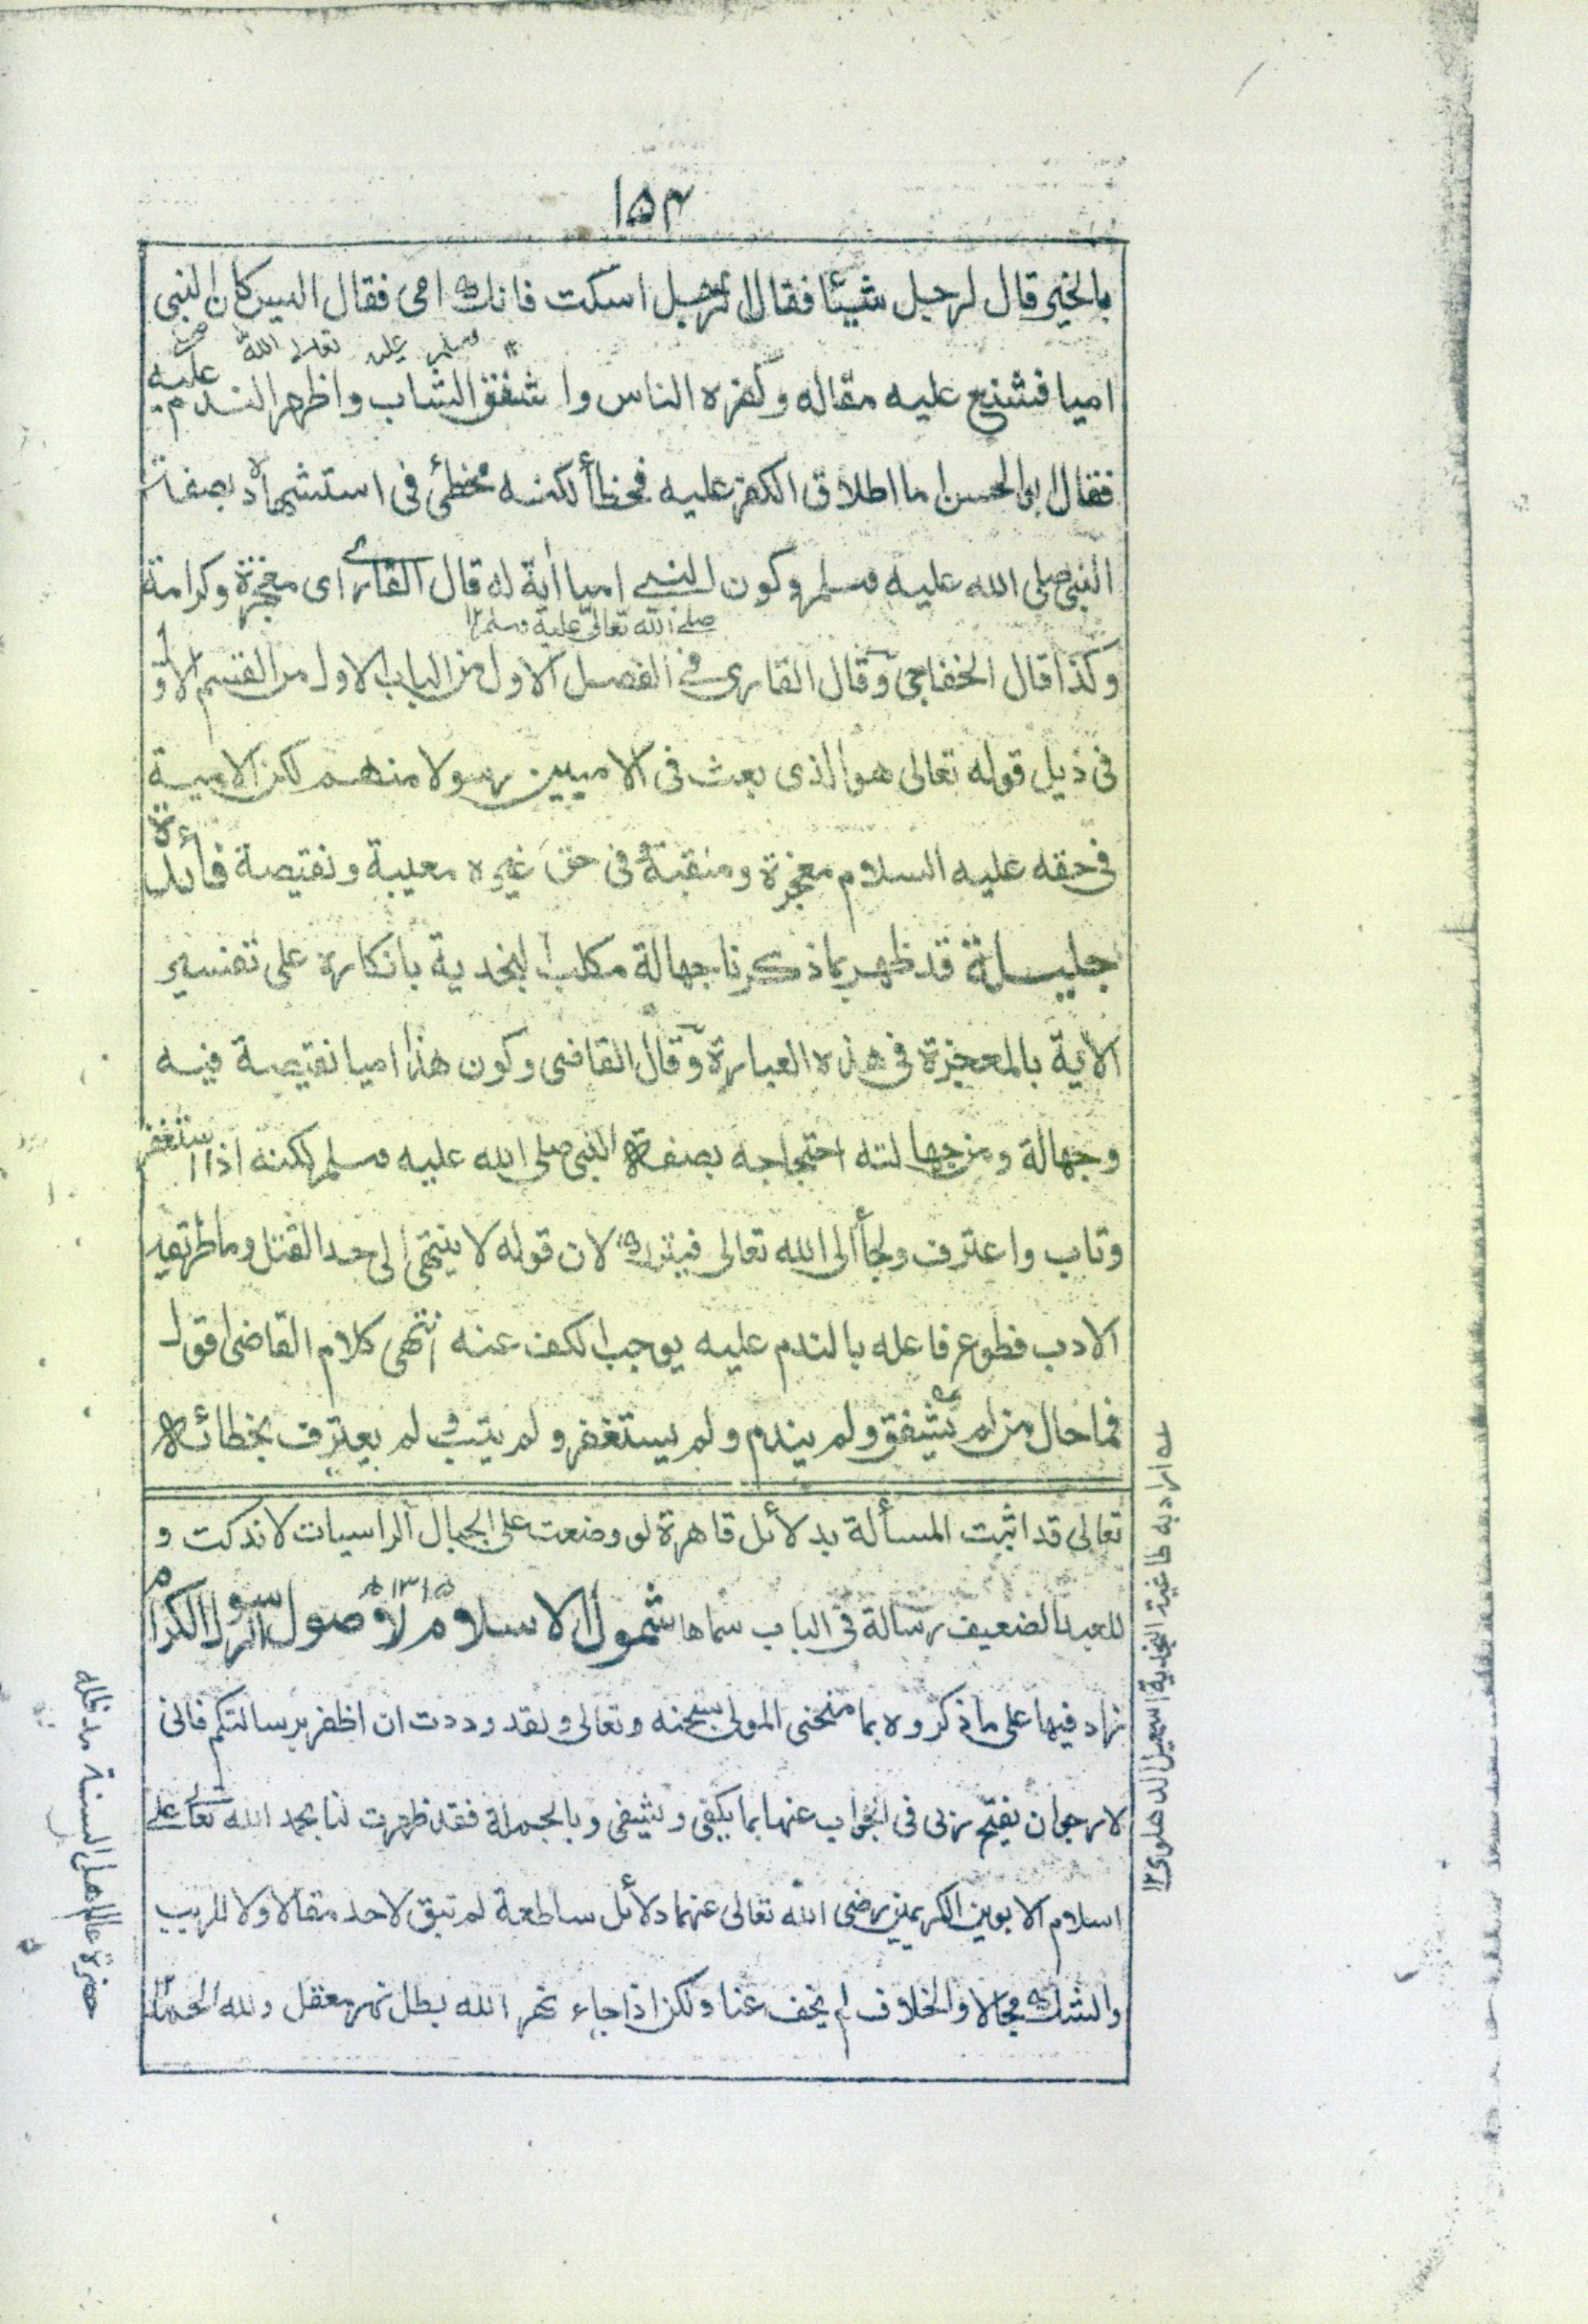 ١٥٤
بالخير قال لرجل شيئا فقال الرجل اسكت فانك امى فقال اليس كان النبى
صلى الله تعالى عليه وسلم
اميا فشنع عليه مقاله وكفره الناس واشفق الشاب واظهر الندم عليه
فقال ابو الحسن اما اطلاق الكفر عليه فخطأ لكنه مخطئ فى استشهاده بصفات
النبى صلى الله عليه وسلم وكون النبى اميا أية له قال القارى اى معجزة وكرامة
صلى الله تعالى عليه وسلم ١٢
وكذا قال الخفاجى وقال القارى فى الفصل الاول من الباب الاول من القسم الاول
فى ذيل قوله تعالى هو الذى بعث فى الاميين رسولا منهم لكن الامية
فى حقه عليه السلام معجزة ومنقبة فى حق غيره معيبة ونقيصة فائدة
جليلة قد ظهر بما ذكرنا جهالة مكلب النجدية بانكاره على تفسير
الأية بالمعجزة فى هذه العبارة وقال القاضى وكون هذا اميا نقيصة فيه
وجهالة ومن جهالته احتجاجه بصفة النبى صلى الله عليه وسلم لكنه اذا استغفر
وتاب واعترف ولجأ الى الله تعالى فيترك لان قوله لا ينتهى الى حد القتل وما طريقه
الادب فطوع فاعله بالندم عليه يوجب الكف عنه انتهى كلام القاضى اقول
فما حال من لم يشفق ولم يندم ولم يستغفر ولم يتب ولم يعترف بخطائه
تعالى قد اثبت المسألة بدلائل قاهرة لو وضعت على الجبال الراسيات لاندكت و
للعبد الضعيف رسالة فى الباب سماها شمول الاسلام لاصول الرسول الكرام
١٣١٥ه
زاد فيها على ما ذكروه بما منحنى المولى سبحنه وتعالى ولقد وددت ان اظفر برسالتكم فانى
لارجو ان يفتح ربى فى الجواب عنها بما يكفى ويشفى وبالجملة فقد ظهرت لنا بحمد الله تعالى على
اسلام الابوين الكريمين رضى الله تعالى عنهما دلائل ساطعة لم تبق لاحد مقالا ولا للريب
والشك مجالا والخلاف لم يخف عنا ولكن اذا جاء نهر الله بطل نهر معقل ولله الحمد
له اراد به طاغية النجدية اسمعيل الدهلوى ١٢
حضرة عالم اهل السنة مد ظله